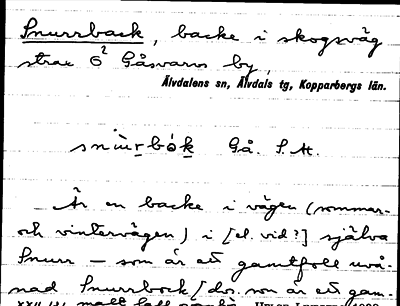 Snurrback, backe i skogsväg
strax Ö² Gåsvarvs by,
Älvdalens sn, Älvdals tg, Kopparbergs län.
snùrbók Gå. S.M.
Är en backe i vägen (sommar-
och vintervägen) i [el. vid?] själva
Snurr – som är ett gamtfoll uvå-
nad Snurrbock / dor. som är ett gam-